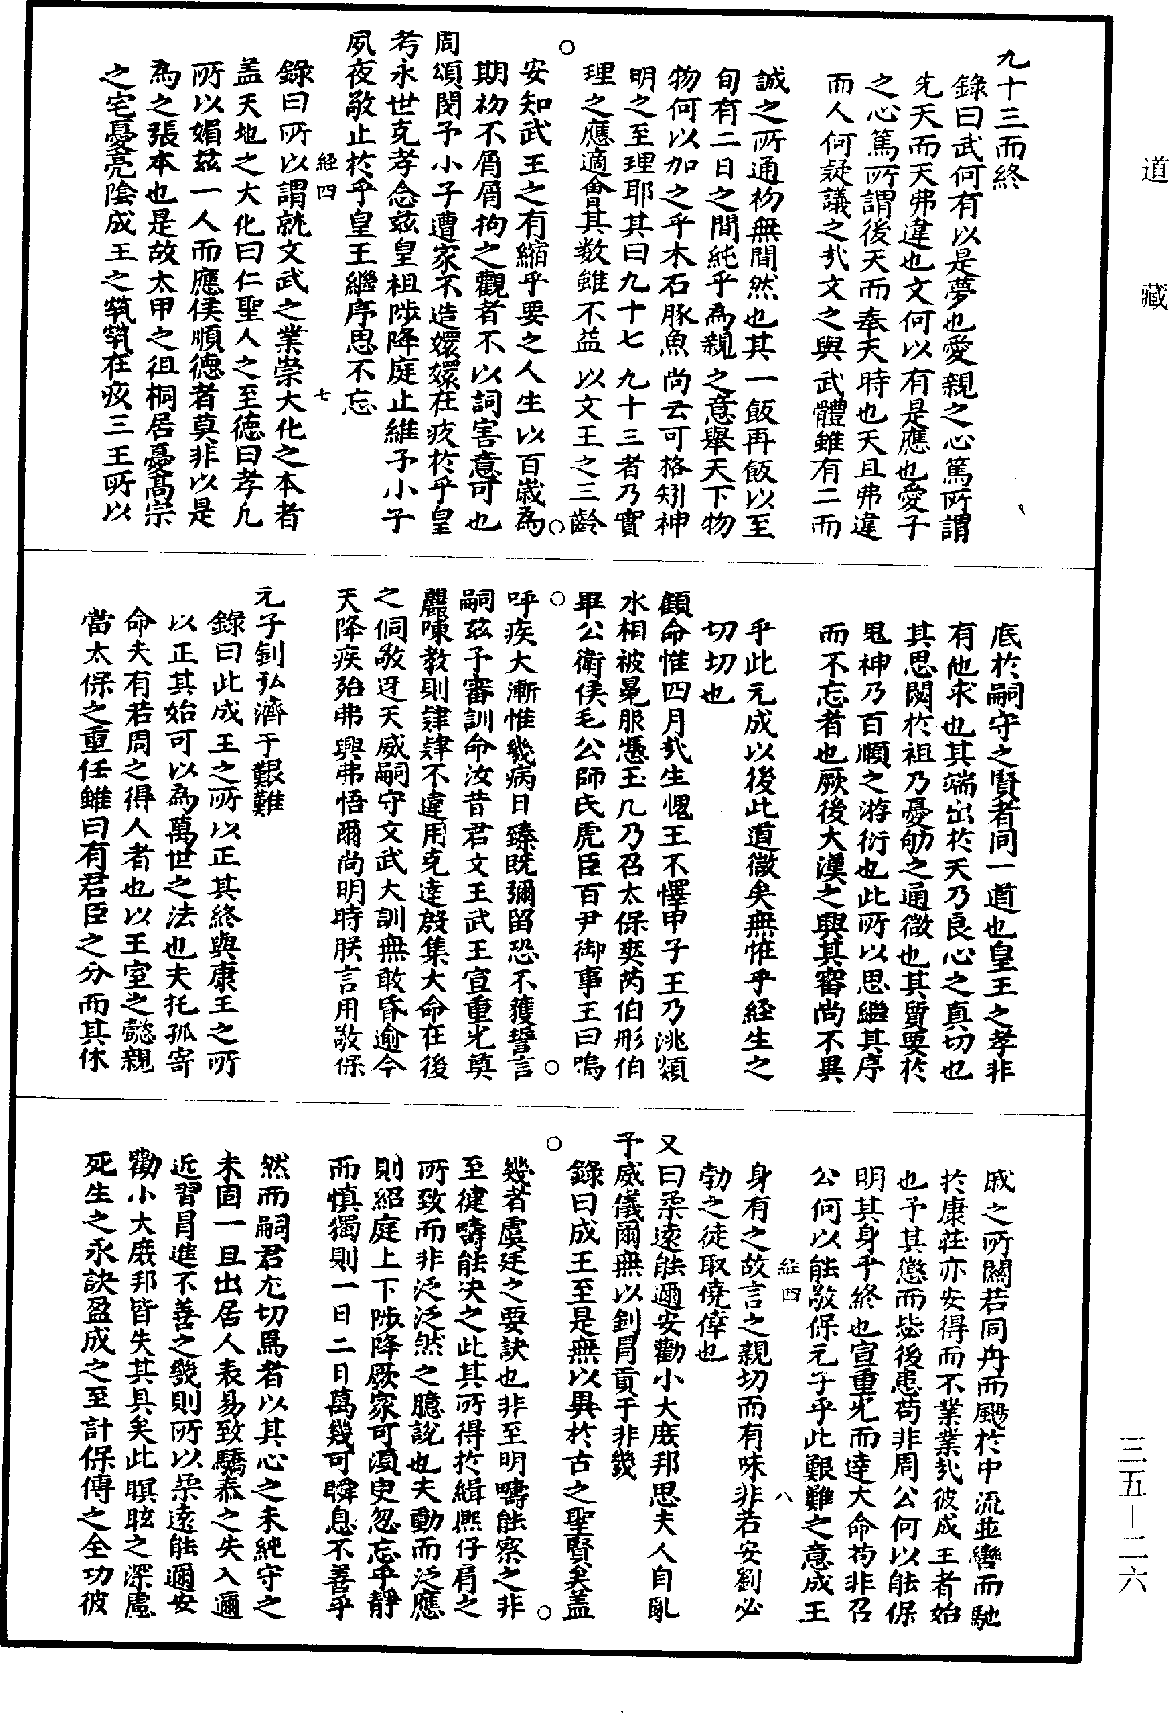 道藏
九十三而終
錄曰武何有以是夢也愛親之心篤所謂
先天而天弗違也文何以有是應也愛子
之心篤所謂後天而奉天時也天且弗違
而人何疑議之哉文之與武體雖有二而
誠之所通初無間然也其一飯再飯以至
旬有二日之間純乎為親之意舉天下物
物何以加之乎木石豚魚尚云可格矧神
明之至理耶其曰九十七九十三者乃實
理之應適會其数雖不益以文王之三齡
安知武王之有縮乎要之人生以百歲為
期初不屑屑拘之觀者不以詞害意可也
周頌閔予小子遭家不造嬛嬛在疚於乎皇
考永世克孝念茲皇祖陟降庭止維予小子
夙夜敬止於乎皇王繼序思不忘
経四 七
錄曰所以謂就文武之業崇大化之本者
盖天地之大化曰仁聖人之至德曰孝凡
所以媚茲一人而應侯順德者莫非以是
為之張本也是故太甲之徂桐居憂高宗
之宅憂亮陰成王之煢煢在疚三王所以
底於嗣守之賢者同一道也皇王之孝非
有他求也其端出於天乃良心之真切也
其思閔於祖乃憂勤之通微也其質與於
鬼神乃百順之游衍也此所以思繼其序
而不忘者也厥後大漢之興其審尚不異
乎此元成以後此道微矣無惟乎経生之
切切也
顧命惟四月哉生魄王不懌甲子王乃洮頮
水相被冕服憑玉几乃召太保奭芮伯彤伯
畢公衛侯毛公師氏虎臣百尹御事王曰嗚
呼疾大漸惟幾病日臻既彌留恐不獲誓言
嗣茲予審訓命汝昔君文王武王宣重光奠
麗陳教則肄肄不違用克達殷集大命在後
之侗敬迓天威嗣守文武大訓無敢昏逾今
天降疾殆弗興弗悟爾尚明時朕言用敬保
元子釗弘濟于艱難
錄曰此成王之所以正其終與康王之所
以正其始可以為萬世之法也夫托孤寄
命夫有若周之得人者也以王室之懿親
當太保之重任雖曰有君臣之分而其休
戚之所關若同舟而颺於中流並轡而馳
於康莊亦安得而不業業哉彼成王者始
也予其懲而毖後患苟非周公何以能保
明其身乎終也宣重光而達大命苟非召
公何以能敬保元子乎此艱難之意成王
経四 八
身有之故言之親切而有味非若安劉必
勃之徒取僥倖也
又曰柔遠能邇安勸小大庶邦思夫人自亂
于威儀爾無以釗冒貢于非幾
錄曰成王至是無以異於古之聖賢矣盖
幾者虞廷之要訣也非至明疇能察之非
至健疇能决之此其所得於緝熙仔肩之
所致而非泛泛然之臆說也夫動而泛應
則紹庭上下陟降厥家可須臾忽忘乎靜
而慎獨則一日二日萬幾可瞬息不善乎
然而嗣君尤切焉者以其心之未純守之
未固一旦出居人表易致驕泰之失入邇
近習冒進不善之幾則所以柔遠能邇安
勸小大庶邦皆失其具矣此瞑眩之深慮
死生之永訣盈成之至計保傅之全功彼
三五—二六